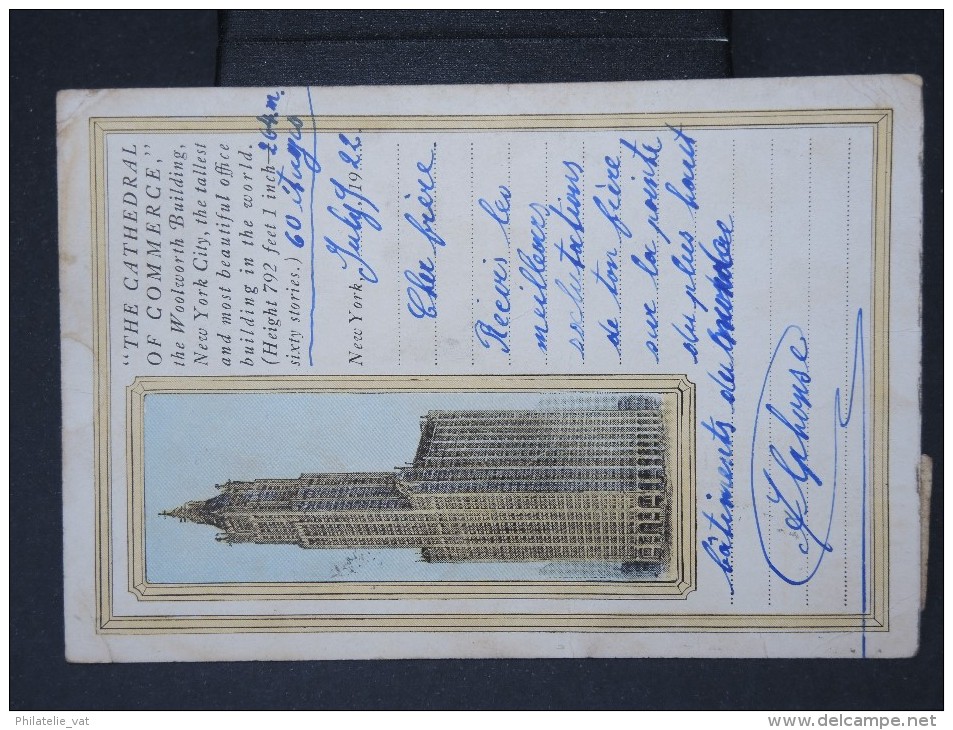 "THE CATHEDRAL
OF COMMERCE,"
the Woolworth Building,
New York City, the tallest
and most beautiful office
building in the world.
(Height 792 feet 1 inch 264 m.
sixty stories.) 60 étages
New York, July 9 1922.
Cher frère
Recois les
meilleurs
salutations
de ton frère
sur la pointe
du plus haut
bâtiments du monde
Philatelie_vat
www.delcampe.net